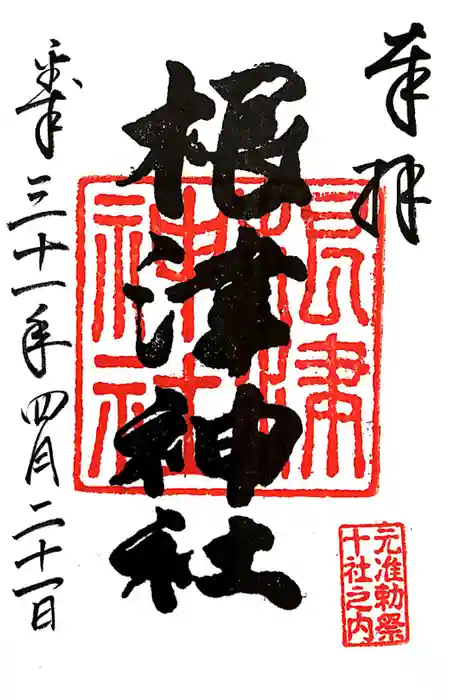 奉拝
根津神社
根津神社
平成三十一年四月二十一日
元准勅祭
十社之内